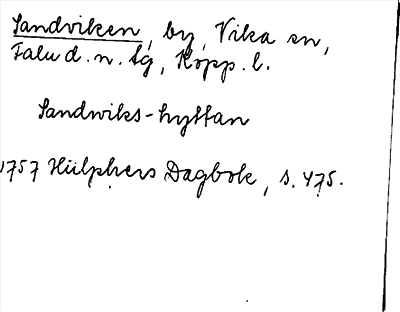 Sandviken, by, Vika sn,
Falu d. n. tg, Kopp. l.
Sandwiks-hyttan
1757 Hülphers Dagbok, s. 475.